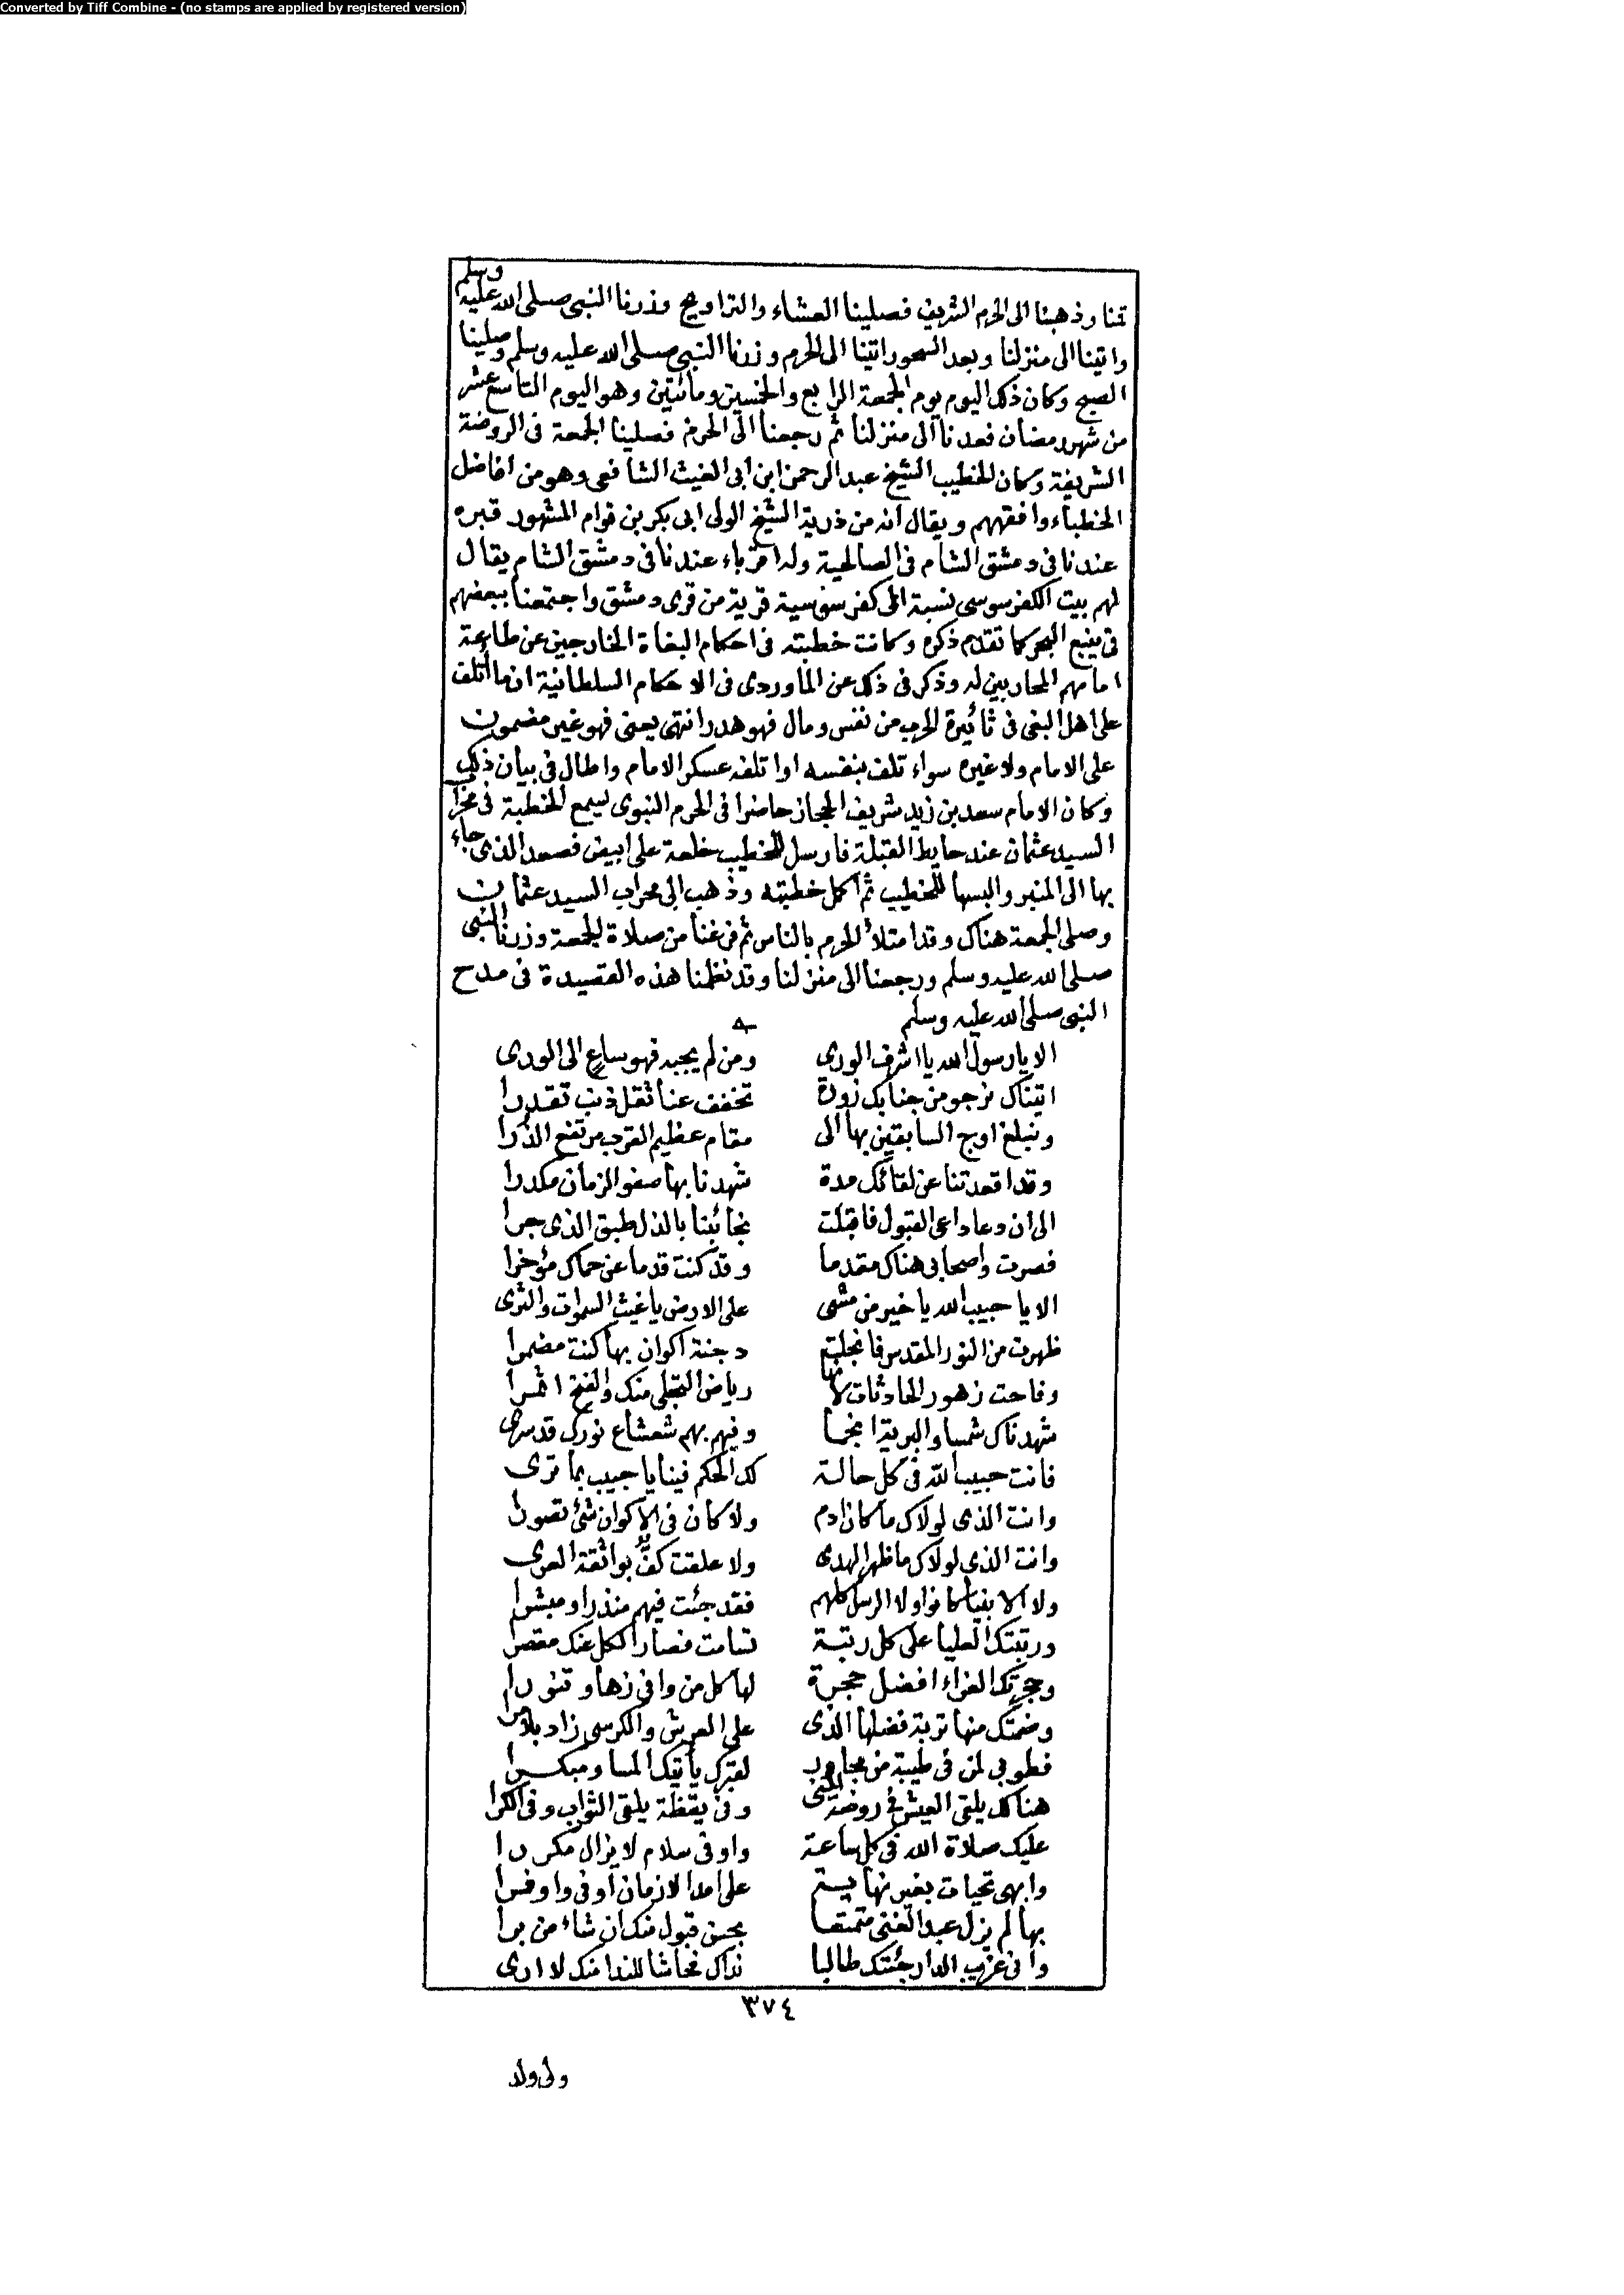 Converted by Tiff Combine - (no stamps are applied by registered version)
قمنا وذهبنا الى الحرم الشريف فصلينا العشاء والتراويح وزرنا النبى صلى الله عليه وسلم
واتينا الى منزلنا وبعد السحور اتينا الى الحرم وزرنا النبى صلى الله عليه وسلم وصلينا
الصبح وكان ذلك اليوم يوم الجمعة الرابع والخمسين ومائتين وهو اليوم التاسع عشر
من شهر رمضان فعدنا الى منزلنا ثم رجعنا الى الحرم فصلينا الجمعة فى الروضة
الشريفة وكان الخطيب الشيخ عبد الرحمن ابن ابى الغيث الشافعى وهو من افاضل
الخطباء وافقههم ويقال انه من ذرية الشيخ الولى ابى بكر بن قوام المشهور قبره
عندنا فى دمشق الشام فى الصالحية وله اقرباء عندنا فى دمشق الشام يقال
لهم بيت الكفرسوسى نسبة الى كفر سوسية قرية من قرى دمشق واجتمعنا ببعضهم
فى ينبع البحر كما تقدم ذكره وكانت خطبته فى احكام البغاة الخارجين عن طاعة
امامهم المحاربين له وذكر فى ذلك عن الماوردى فى الاحكام السلطانية ان ما أتلف
على اهل البغى فى ثائرة الحرب من نفس ومال فهو هدر انتهى يعنى فهو غير مضمون
على الامام ولا غيره سواء تلف بنفسه او اتلفه عسكر الامام واطال فى بيان ذلك
وكان الامام سعد بن زيد شريف الحجاز حاضرا فى الحرم النبوى يسمع الخطبة فى محراب
السيد عثمان عند حايط القبلة فارسل للخطيب خلعة على ابيض فصعد الذى جاء
بها الى المنبر والبسها للخطيب ثم اكمل خطبته وذهب الى محراب السيد عثمان
وصلى الجمعة هناك وقد امتلأ الحرم بالناس ثم فرغنا من صلاة الجمعة وزرنا النبى
صلى الله عليه وسلم ورجعنا الى منزلنا وقد نظمنا هذه القصيدة فى مدح
النبى صلى الله عليه وسلم
الا يا رسول الله يا اشرف الورى ومن لم يجبه فهو ساعٍ الى الورى
اتيناك نرجو من جنابك زورة تخفف عنا ثقل ذنب تقدرا
ونبلغ اوج السابقين بها الى مقام عظيم القرب مرتفع الذرا
وقد اقعدتنا عن لقائك مدة شهدنا بها صفو الزمان مكدرا
الى ان دعا داعى القبول فاقبلت نجائبنا بالذل طبق الذى جرا
فصرت واصحابى هناك مقدما وقد كنت قدما عن حماك مؤخرا
الا يا حبيب الله يا خير من مشى على الارض يا غيث السموات والثرى
ظهرت من النور المقدس فانجلت دجنة اكوان بها كنت مضمرا
وفاحت زهور الحادثات لأنها رياض التجلى منك والفتح اثمرا
شهدناك شمسا والبرية انجما وفيهم بهم شعشاع نورك قد سرى
فانت حبيب الله فى كل حالة لك الحكم فينا يا حبيب بما ترى
وانت الذى لولاك ما كان ادم ولا كان فى الاكوان شئ تصورا
وانت الذى لولاك ما ظهر الهدى ولا علقت كفٌّ بواثقة العرى
ولا الانبيا كانوا ولا الرسل كلهم فقد جئت فيهم منذرا ومبشرا
ورتبتك العليا على كل رتبة تسامت فصار الكل عنك مقصرا
وحجرتك الغراء افضل حجرة لها كل من وافى زها وتنورا
وضمتك منها تربة فضلها الذى على العرش والكرسى زاد بلا مرا
فطوبى لمن فى طيبة من مجاور لقبرك يأتيك المسا ومبكرا
هنالك يلقى العيش فى روضة المنى وفى يقظة يلقى الثواب وفى الكرا
عليك صلاة الله فى كل ساعة واوفى سلام لا يزال مكررا
وابهى تحيات بغير نهاية على مدا الازمان اوفى واوفرا
بها لم يزل عبد الغنى متمتعا بحسن قبول منك ان شاء من برا
وانى غريب الدار جئتك طالبا نداك فحاشا للندا منك لا ارى
٣٧٤
ولى ولد